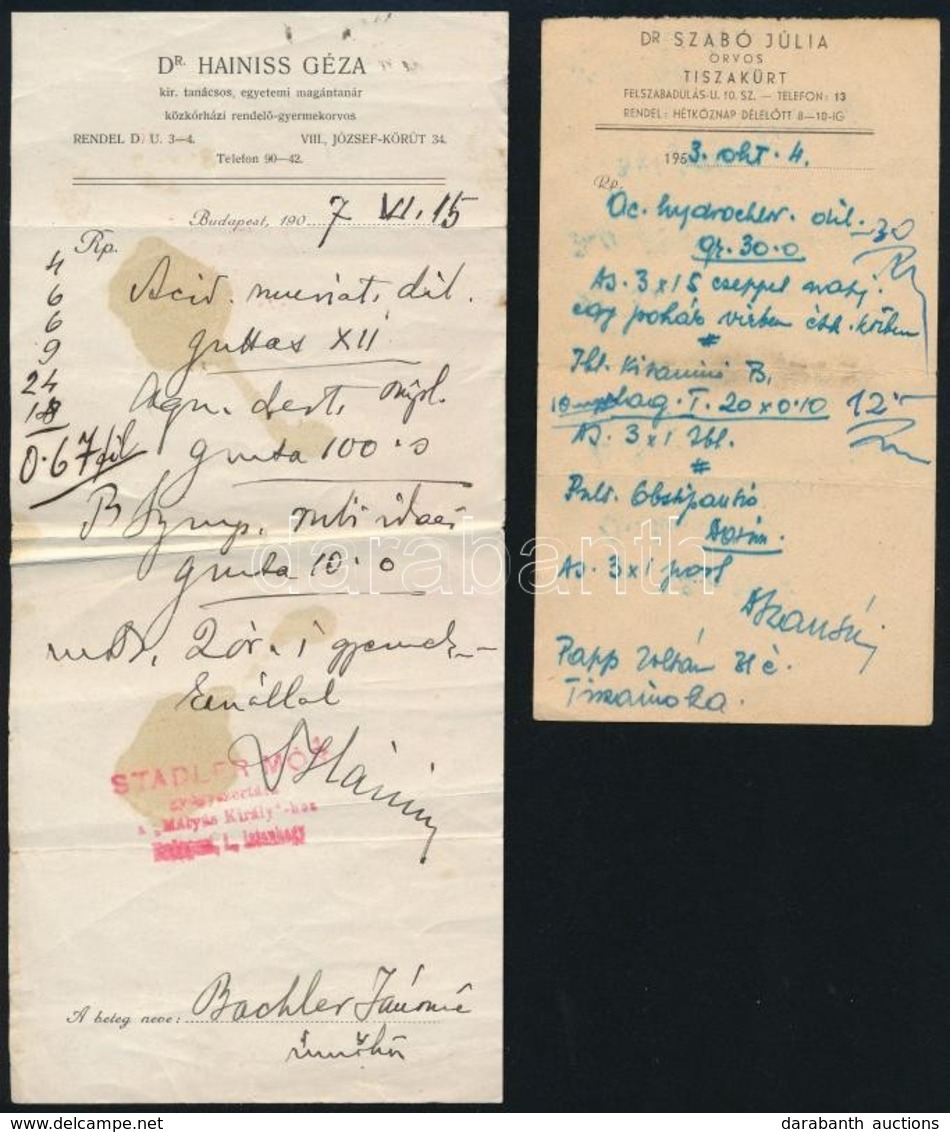 DR. HAINISS GÉZA
kir. tanácsos, egyetemi magántanár
közkórházi rendelő-gyermekorvos
RENDEL D. U. 3—4. VIII., JÓZSEF-KÖRÚT 34.
Telefon 90—42.
Budapest, 1907 VI. 15
Rp.
4
6
6
9
24
18
0.67 fil
Acid. muriat. dil.
guttas XII
Aqu. dest.
gmta 100.0
Syrup. rubi idaei
gmta 10.0
MDS. 2 ór. 1 gyermek-
kanállal
STADLER MÓR
gyógyszertára
a „Mátyás Király"-hoz
Budapest, I., Istenhegy
A beteg neve: Bachler Jánosné
DR SZABÓ JÚLIA
ORVOS
TISZAKÜRT
FELSZABADULÁS-U. 10. SZ. — TELEFON: 13
RENDEL: HÉTKÖZNAP DÉLELŐTT 8—10-IG
1953. okt. 4.
Rp.
Ac. hydrochlor. dil. 30
gr. 30.0
As. 3x15 cseppet
egy pohár vízben étk. közben
#
Tbl. B,
lag. I. 20x0.10 12.-
As. 3x1 tbl.
#
Pulv. Obstipantio
As. 3x1 port
Papp Zoltán
Tiszainoka.
darabanth
darabanth auctions